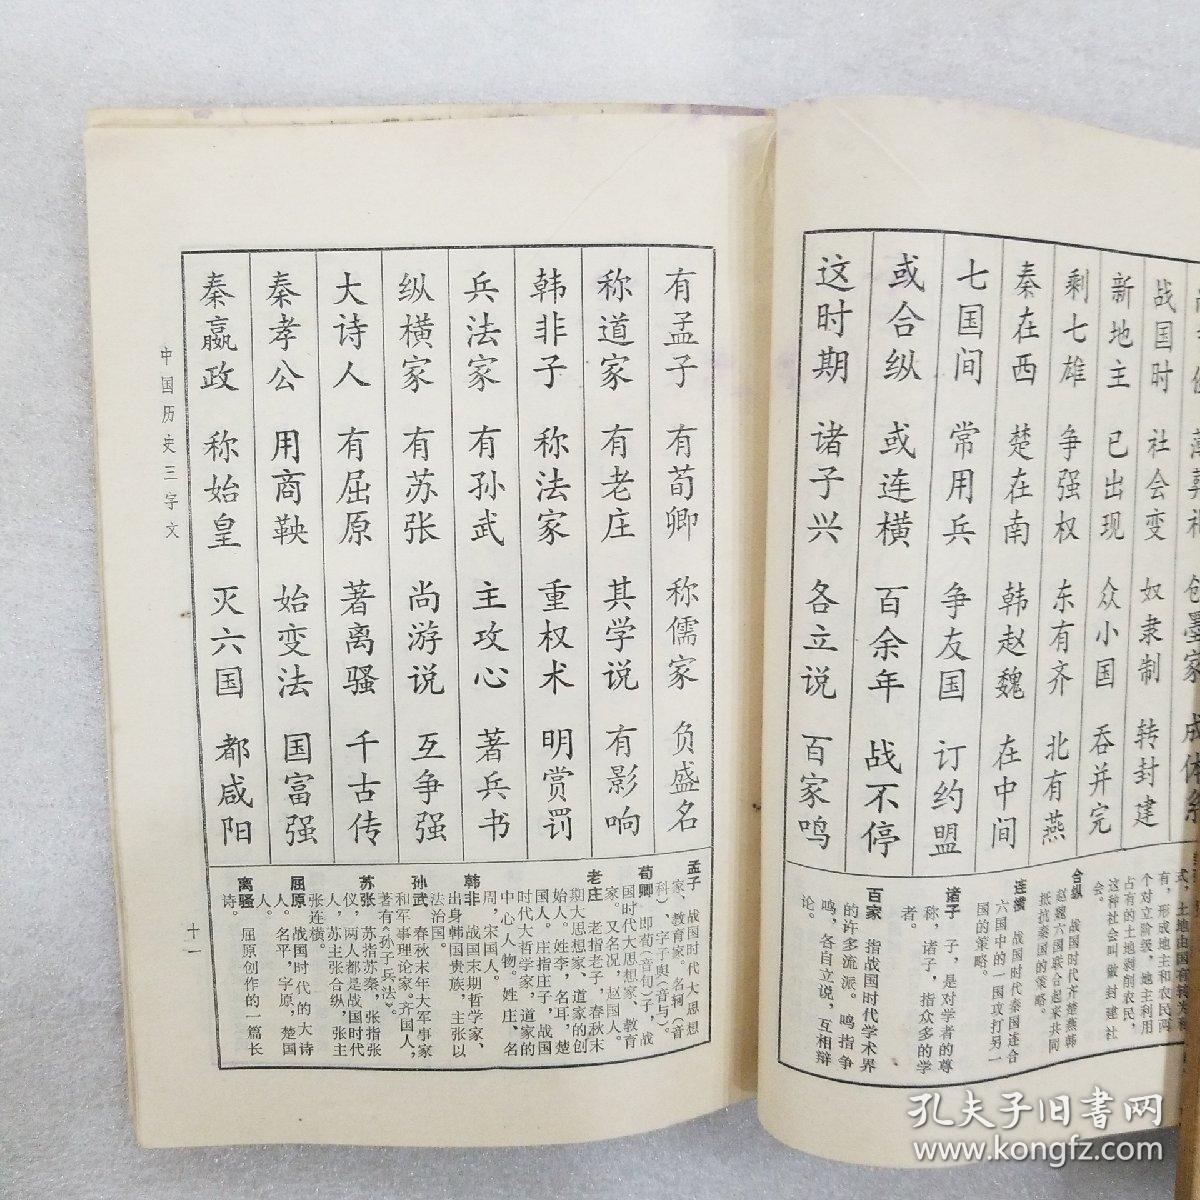 战国时 社会变 奴隶制 转封建
新地主 已出现 众小国 吞并完
剩七雄 争强权 东有齐 北有燕
秦在西 楚在南 韩赵魏 在中间
七国间 常用兵 争友国 订约盟
或合纵 或连横 百余年 战不停
这时期 诸子兴 各立说 百家鸣
有形成地主和农民两
个对立阶级,地主利用
占有的土地剥削农民,
这种社会叫做封建社
会。
合纵 战国时代齐楚燕韩
赵魏六国联合起来共同
抵抗秦国的策略。
连横 战国时代秦国连合
六国中的一国攻打另一
国的策略。
诸子 子,是对学者的尊
称,诸子,指众多的学
者。
百家 指战国时代学术界
的许多流派。鸣指争
鸣,各自立说,互相辩
论。
有孟子 有荀卿 称儒家 负盛名
称道家 有老庄 其学说 有影响
韩非子 称法家 重权术 明赏罚
兵法家 有孙武 主攻心 著兵书
纵横家 有苏张 尚游说 互争强
大诗人 有屈原 著离骚 千古传
秦孝公 用商鞅 始变法 国富强
秦嬴政 称始皇 灭六国 都咸阳
孟子 战国时代大思想
家、教育家。名轲(音
科),字子舆(音与)。
荀卿 即荀(音旬)子,战
国时代大思想家、教育
家。又名况,赵国人。
老庄 老指老子,春秋末
期大思想家,道家的创
始人。姓李,名耳,楚
国人。庄指庄子,战国
时代大哲学家,道家的
中心人物。姓庄、名
周,宋国人。
韩非 战国末期哲学家、
出身韩国贵族,主张以
法治国。
孙武 春秋末年大军事家
和军事理论家。齐国人;
著有《孙子兵法》。
苏张 苏指苏秦,张指张
仪,两人都是战国时代
人,苏主张合纵,张主
张连横。
屈原 战国时代的大诗
人。名平,字原,楚国
人。
离骚 屈原创作的一篇长
诗。
中国历史三字文
十一
孔夫子旧书网
www.kongfz.com